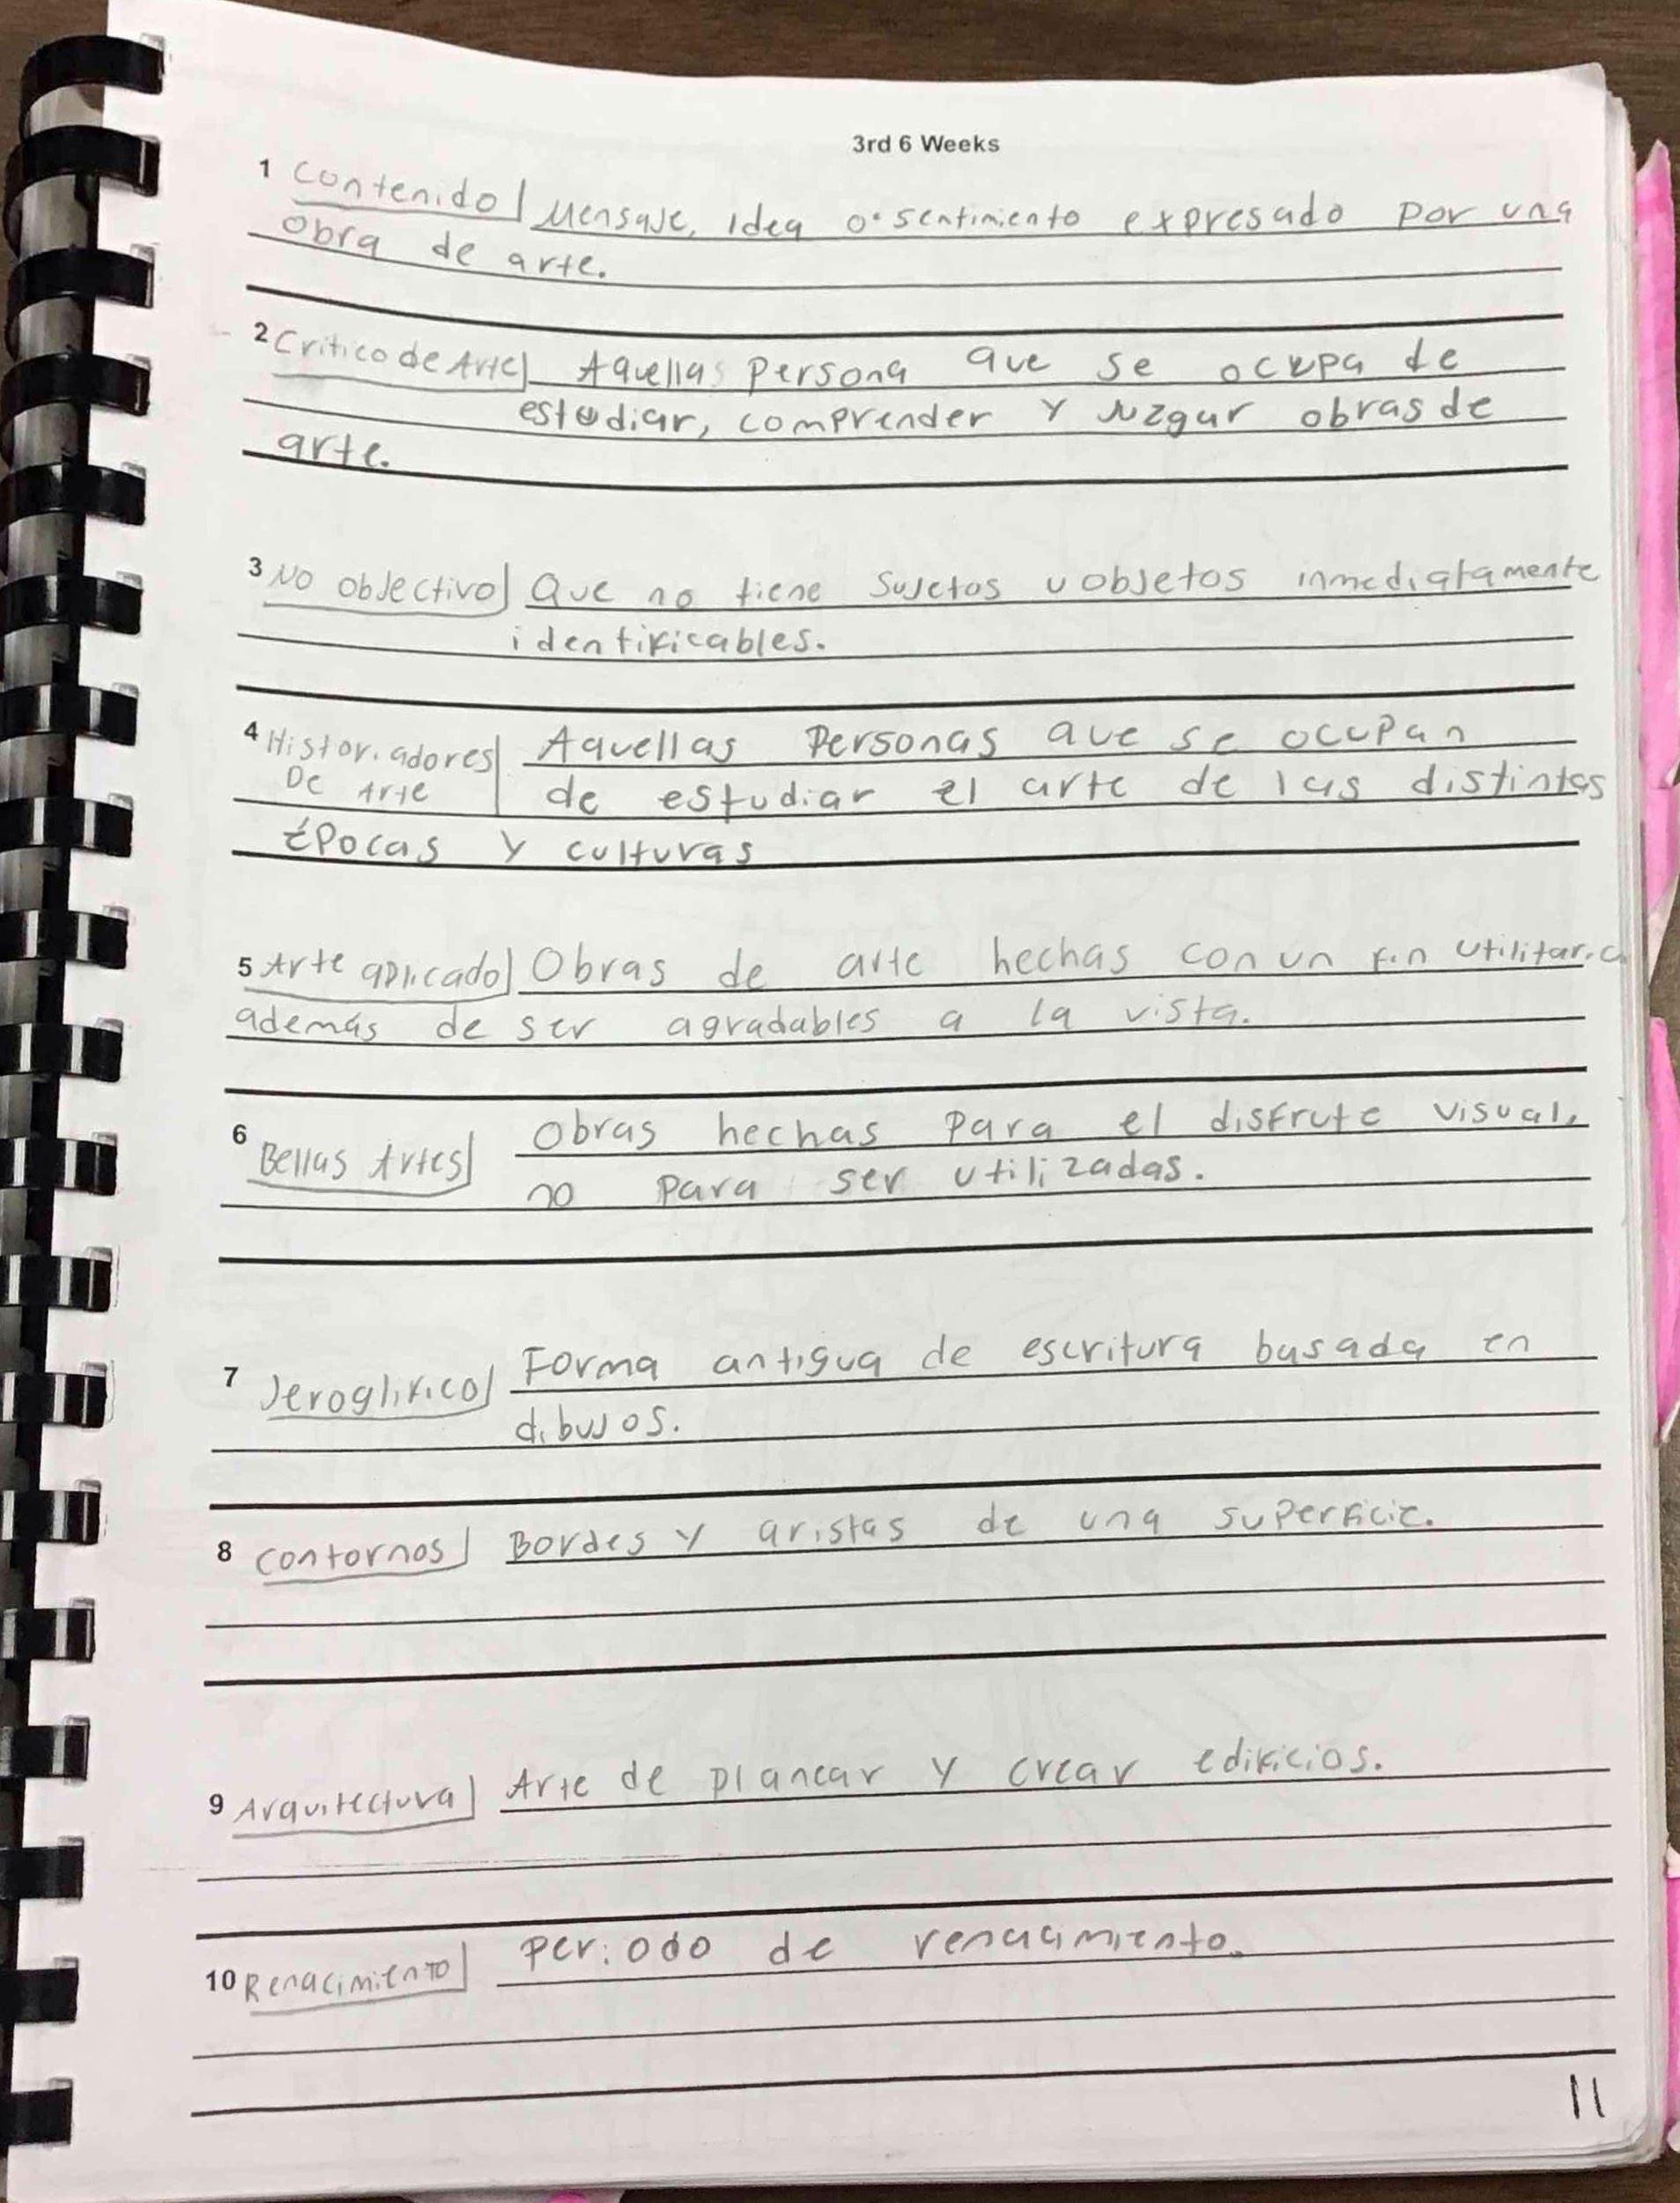 3rd 6 Weeks
1 Contenido | Mensaje, idea o sentimiento expresado por una
Obra de arte.
2 Critico de Arte | Aquellas persona que se ocupa de
estudiar, comprender y juzgar obras de
arte.
3 No objectivo | Que no tiene sujetos u objetos inmediatamente
identificables.
4 Historiadores | Aquellas Personas que se ocupan
De Arte | de estudiar el arte de las distintas
épocas y culturas
5 Arte aplicado | Obras de arte hechas con un fin utilitario
además de ser agradables a la vista.
6 Bellas Artes | Obras hechas para el disfrute visual,
no para ser utilizadas.
7 Jeroglifico | Forma antigua de escritura basada en
dibujos.
8 Contornos | Bordes y aristas de una superficie.
9 Arquitectura | Arte de planear y crear edificios.
10 Renacimiento | Periodo de renacimiento.
11